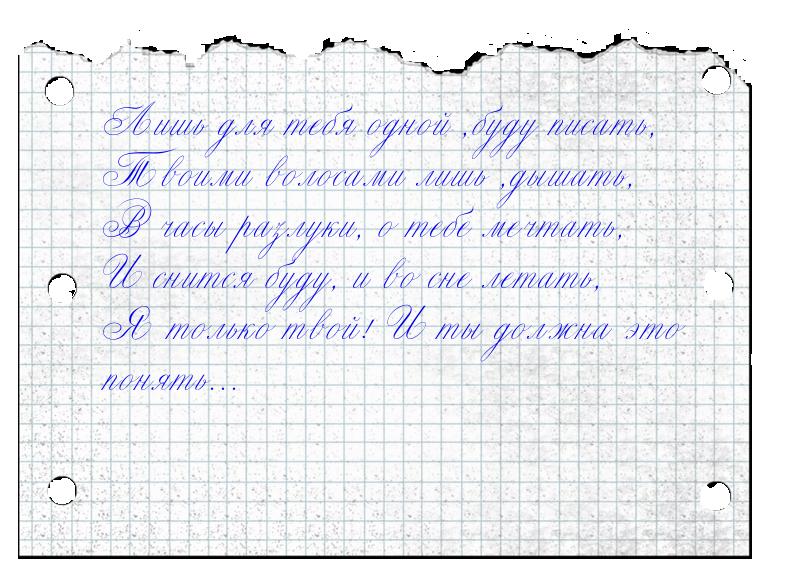 Лишь для тебя одной ,буду писать,
Твоими волосами лишь ,дышать,
В часы разлуки, о тебе мечтать,
И снится буду, и во сне летать,
Я только твой! И ты должна это
понять...